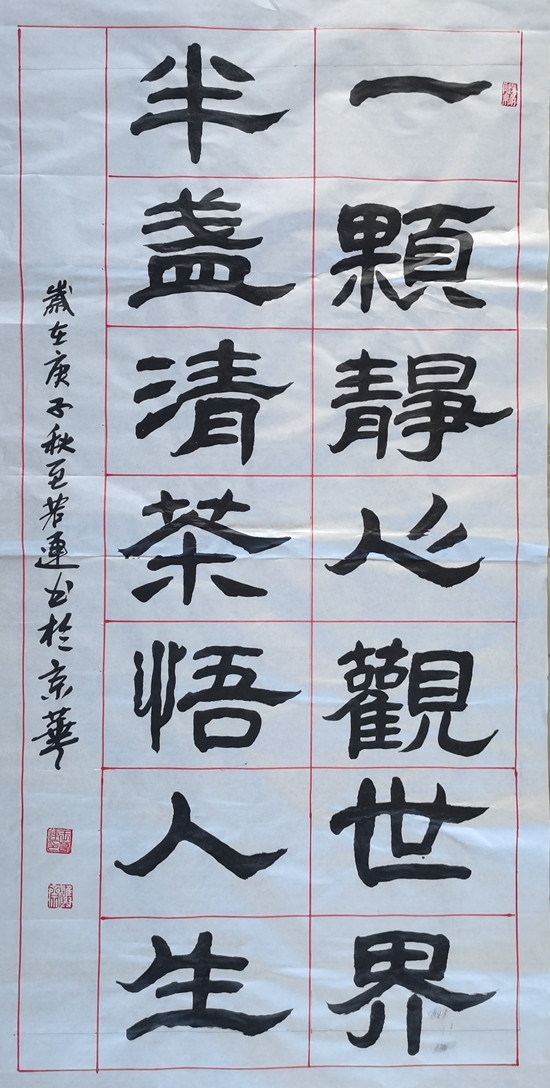 一顆靜心觀世界
半盞清茶悟人生
歲在庚子秋至若連书於京華